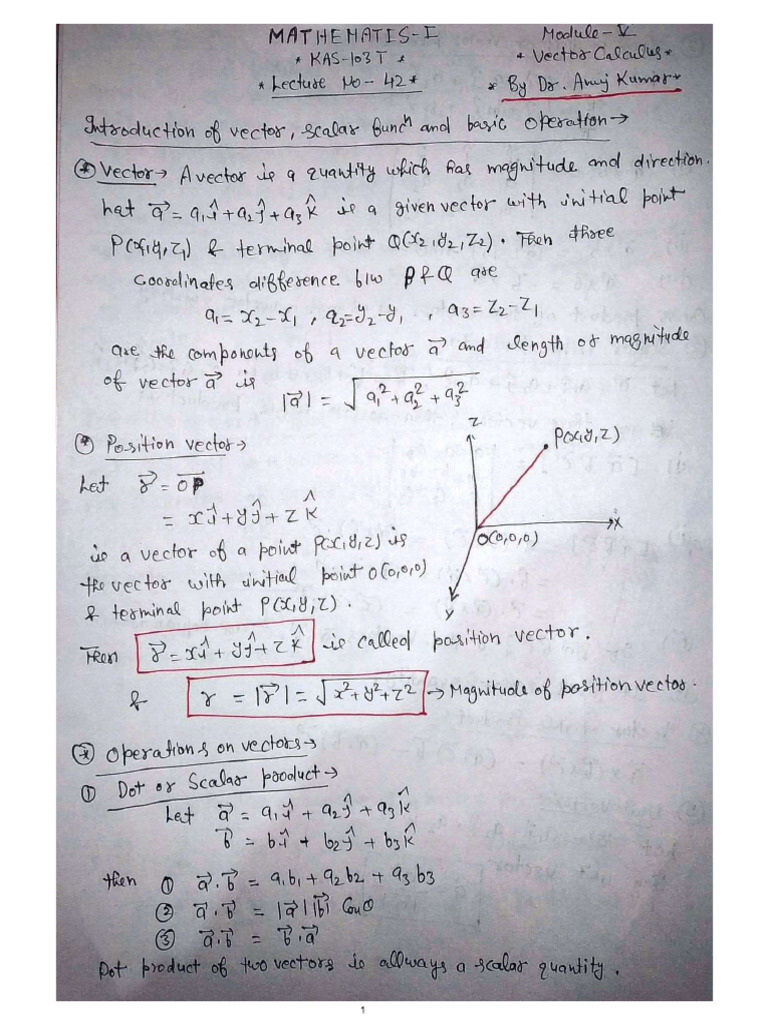 MATHEMATIS-I
Module-V
* KAS-103T *
* Vector Calculus *
* Lecture No - 42 *
* By Dr. Anuj Kumar *
Introduction of vector, scalar funcⁿ and basic operation→
* Vector→ A vector is a quantity which has magnitude and direction.
Let a⃗ = a₁î + a₂ĵ + a₃k̂ is a given vector with initial point
P(x₁,y₁,z₁) & terminal point Q(x₂,y₂,z₂). Then three
coordinates difference b/w P & Q are
a₁ = x₂-x₁, a₂=y₂-y₁, a₃ = z₂-z₁
are the components of a vector a⃗ and length or magnitude
of vector a⃗ is
|a⃗| = √(a₁² + a₂² + a₃²)
* Position vector→
Let r⃗ = OP⃗
= xî + yĵ + zk̂
is a vector of a point P(x,y,z) is
the vector with initial point O(0,0,0)
& terminal point P(x,y,z).
Z
P(x,y,z)
X
O(0,0,0)
Y
Then r⃗ = xî + yĵ + zk̂ is called position vector.
& r = |r⃗| = √(x²+y²+z²) → Magnitude of position vector.
* Operations on vectors→
① Dot or Scalar product→
Let a⃗ = a₁î + a₂ĵ + a₃k̂
b⃗ = b₁î + b₂ĵ + b₃k̂
then ① a⃗.b⃗ = a₁b₁ + a₂b₂ + a₃b₃
② a⃗.b⃗ = |a⃗||b⃗| Cosθ
③ a⃗.b⃗ = b⃗.a⃗
Dot product of two vectors is allways a scalar quantity.
1